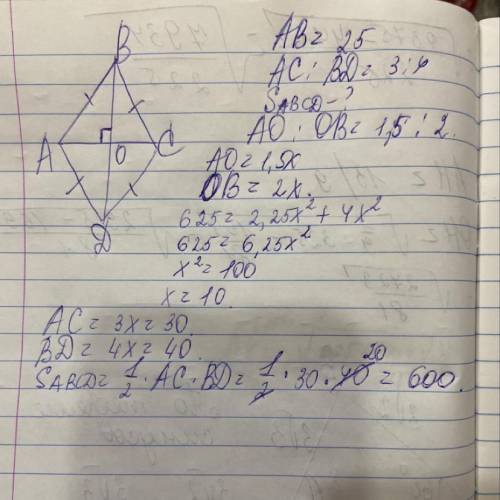 B
A
O
C
D
AB = 25
AC : BD = 3 : 4
SABCD - ?
AO : OB = 1,5 : 2.
AO = 1,5x
OB = 2x.
625 = 2,25x² + 4x²
625 = 6,25x²
x² = 100
x = 10.
AC = 3x = 30.
BD = 4x = 40.
SABCD = 1/2 · AC · BD = 1/2 · 30 · 40 20 = 600.